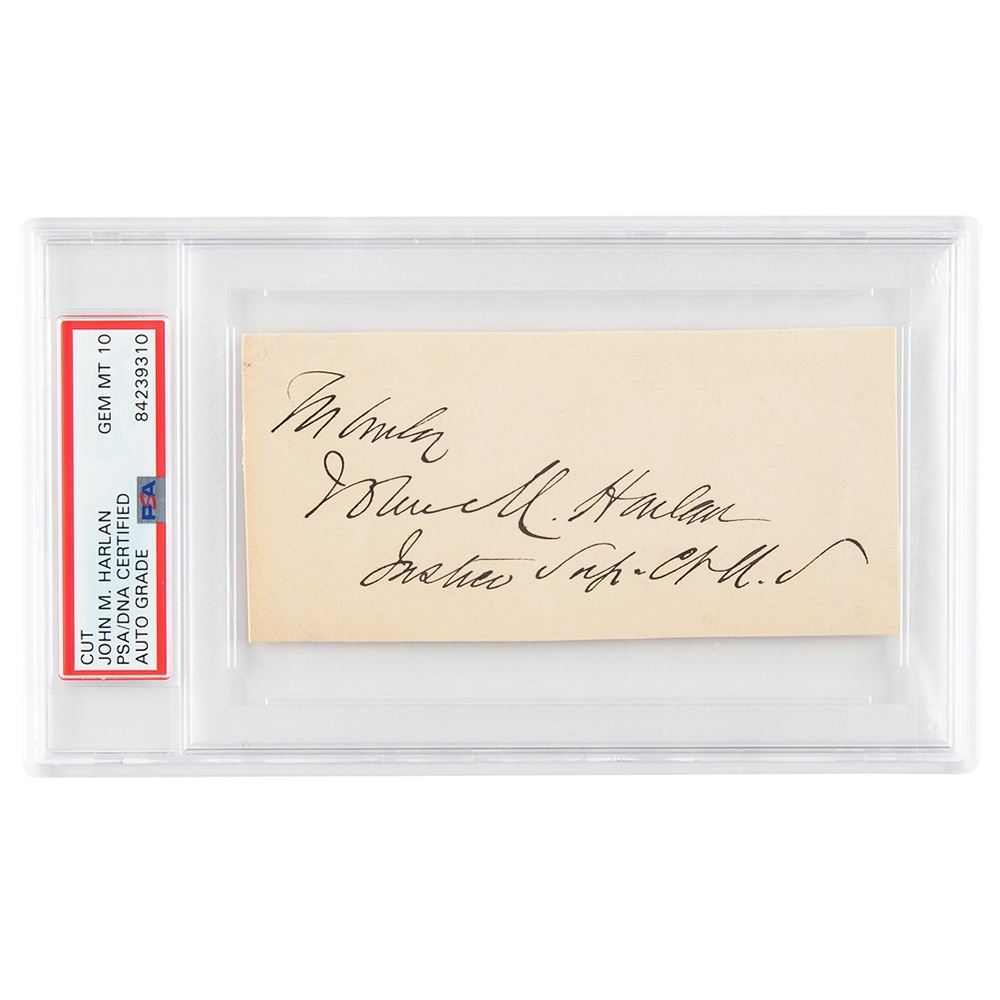 CUT GEM MT 10
JOHN M. HARLAN
PSA/DNA CERTIFIED
AUTO GRADE 84239310
PSA
John M. Harlan
Justice Sup. Ct U.S